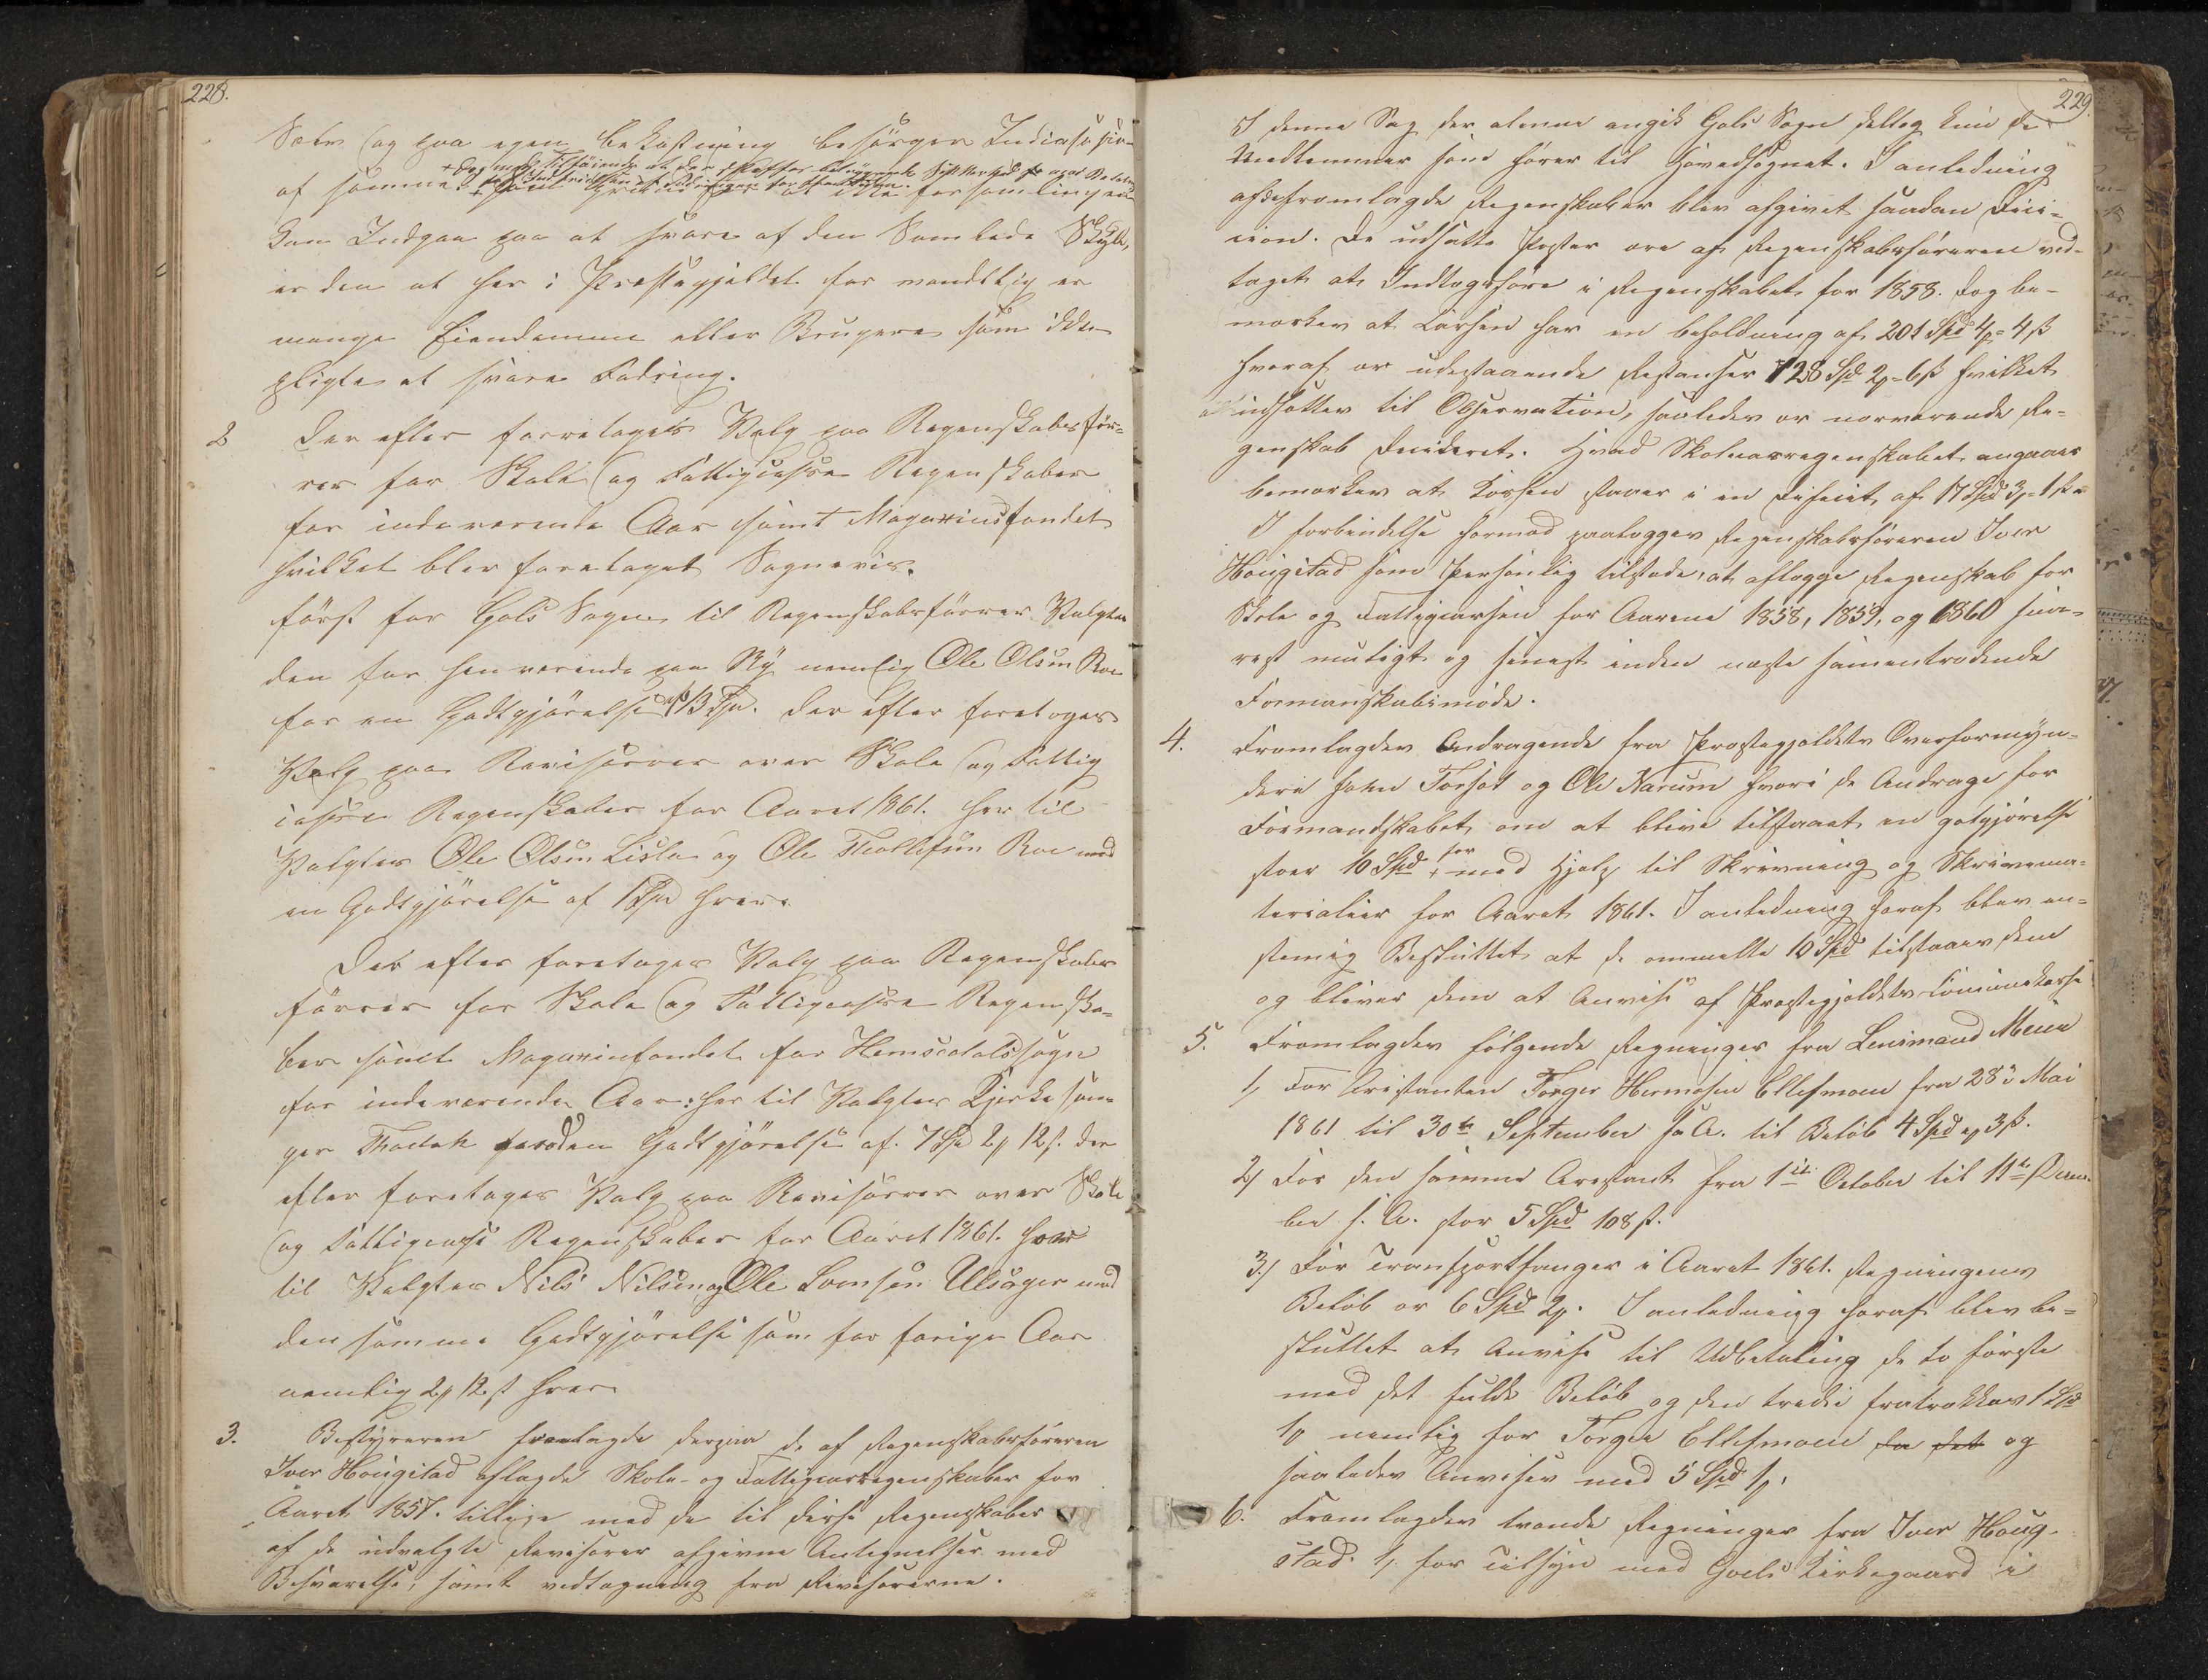 228.
Søbr og paa egen bekostning besörger Indcasasion
+ Dog med Tilföiende at den skatter
af samme. + at ikke forsamlingen
kan Indgaa paa at svare af den Samlede Skyld,
er den at her i Præstegjeldet for mandtlig er
mange Eiendomme eller Brugere som ikke
pligte at svare Fodring.
2 Der efter foretoges Valg paa Regenskabsför-
rer for Skole og Fattigcasse Regenskaber
for indeværende Aar samt Magaxinsfondet
hvilket blev foretaget Sognevis.
först for Gols Sogn, til Regenskabsförrer Valgtes
den for hen værende paa Ny nemlig Ole Olsen Roe
for en Godtgjörelse af 13 Spd. Der efter foretoges
Valg paa Revisorer over Skole og Fattig
casse Regenskaber for Aaret 1861. her til
Valgtes Ole Olsen Lisla og Ole Trollefsen Roe med
en Godtgjörelse af 1 Spd hver.
Der efter foretoges Valg paa Regenskabs
förrer for Skole og Fattigcasse Regenska-
ber samt Magaxinfondet for Hemsedals sogn
for indeværende Aar: her til Valgtes Kjerkesan-
ger Flaatek for den Godtgjörelse af 7 Spd 2 12 s. Der
efter foretoges Valg paa Revisorer over Skole
og Fattigcasse Regenskaber for Aaret 1861. her
til Valgtes Nils Nilsen og Ole Svensen Ulsager med
den samme Godtgjörelse som for forige Aar
nemlig 2 12 s hver
3. Bestyreren fremlagde derpaa de af Regenskabsföreren
Iver Hougstad aflagde Skole- og Fattigcasregenskaber for
Aaret 1857. tillige med de til disse Regenskaber
af de udvalgte Revisorer afgivne Antegnelser med
Besvarelse, samt vedtagning fra Revisorerne.
229.
I denne Sag der alene angik Gols Sogn deltog kun de
Medlemmer som hörer til Hovedsognet. I anledning
af de fremlagde Regenskaber blev afgivet saadan Deci-
sion. De udsatte Poster ere af Regenskabsföreren ved-
taget at Indtægtsföre i Regenskabet for 1858. Dog be-
mærkes at Cassen har en beholdning af 201 Spd 4 4 s
hvoraf er udestaaende Restanser 128 Spd 2 6 s hvilket
udsættes til Observation, saaledes er nærværende Re-
genskab Decideret. Hvad Skolecasregenskabet angaaer
bemærkes at Cassen staaer i en Deficit af 17 Spd 3 1 s
I forbindelse hermed paalægges Regenskabsföreren Iver
Hougstad som Personlig tilstede, at aflægge Regenskab for
Skole og Fattigcassen for Aarene 1858, 1859, og 1860 snar-
rest muligt og senest inden næste sammentrædende
Formanskabsmöde.
4. Fremlagdes Andragende fra Præstegjeldets Overformyn-
dere John Torset og Ole Narum hvori de Andrage for
Formandskabet om at blive tilstaaet en godtgjörelse
stor 10 Spd for + med Hjelp til Skrivning og Skrivema-
terialier for Aaret 1861. I anledning heraf blev en-
stemig Besluttet at de ommelte 10 Spd tilstaaes dem
og bliver dem at Anvise af Præstegjeldets Communekasse
5. Fremlagdes fölgende Regninger fra Lensmand Meier
1, For Arrestanten Torger Hermosen Ellefsmoen fra 28de Mai
1861 til 30te September s. A. til Belöb 4 Spd 3 s.
2) For den samme Arrestant fra 1ste October til 11te Decem-
ber s. A. stor 5 Spd 108 s.
3.) For Transportfanger i Aaret 1861. Regningens
Belöb er 6 Spd 2. I anledning heraf blev be-
sluttet at Anvise til Udbetaling de to förste
med det fulde Belöb og den tredie fratrækkes 1 Spd
1 nemlig for Torger Ellefsmoen da det og
saaledes Anvises med 5 Spd 1.
6. Fremlagdes tvende Regninger fra Iver Houg-
stad. 1, for Tilsyn med Goels Kirkegaard i